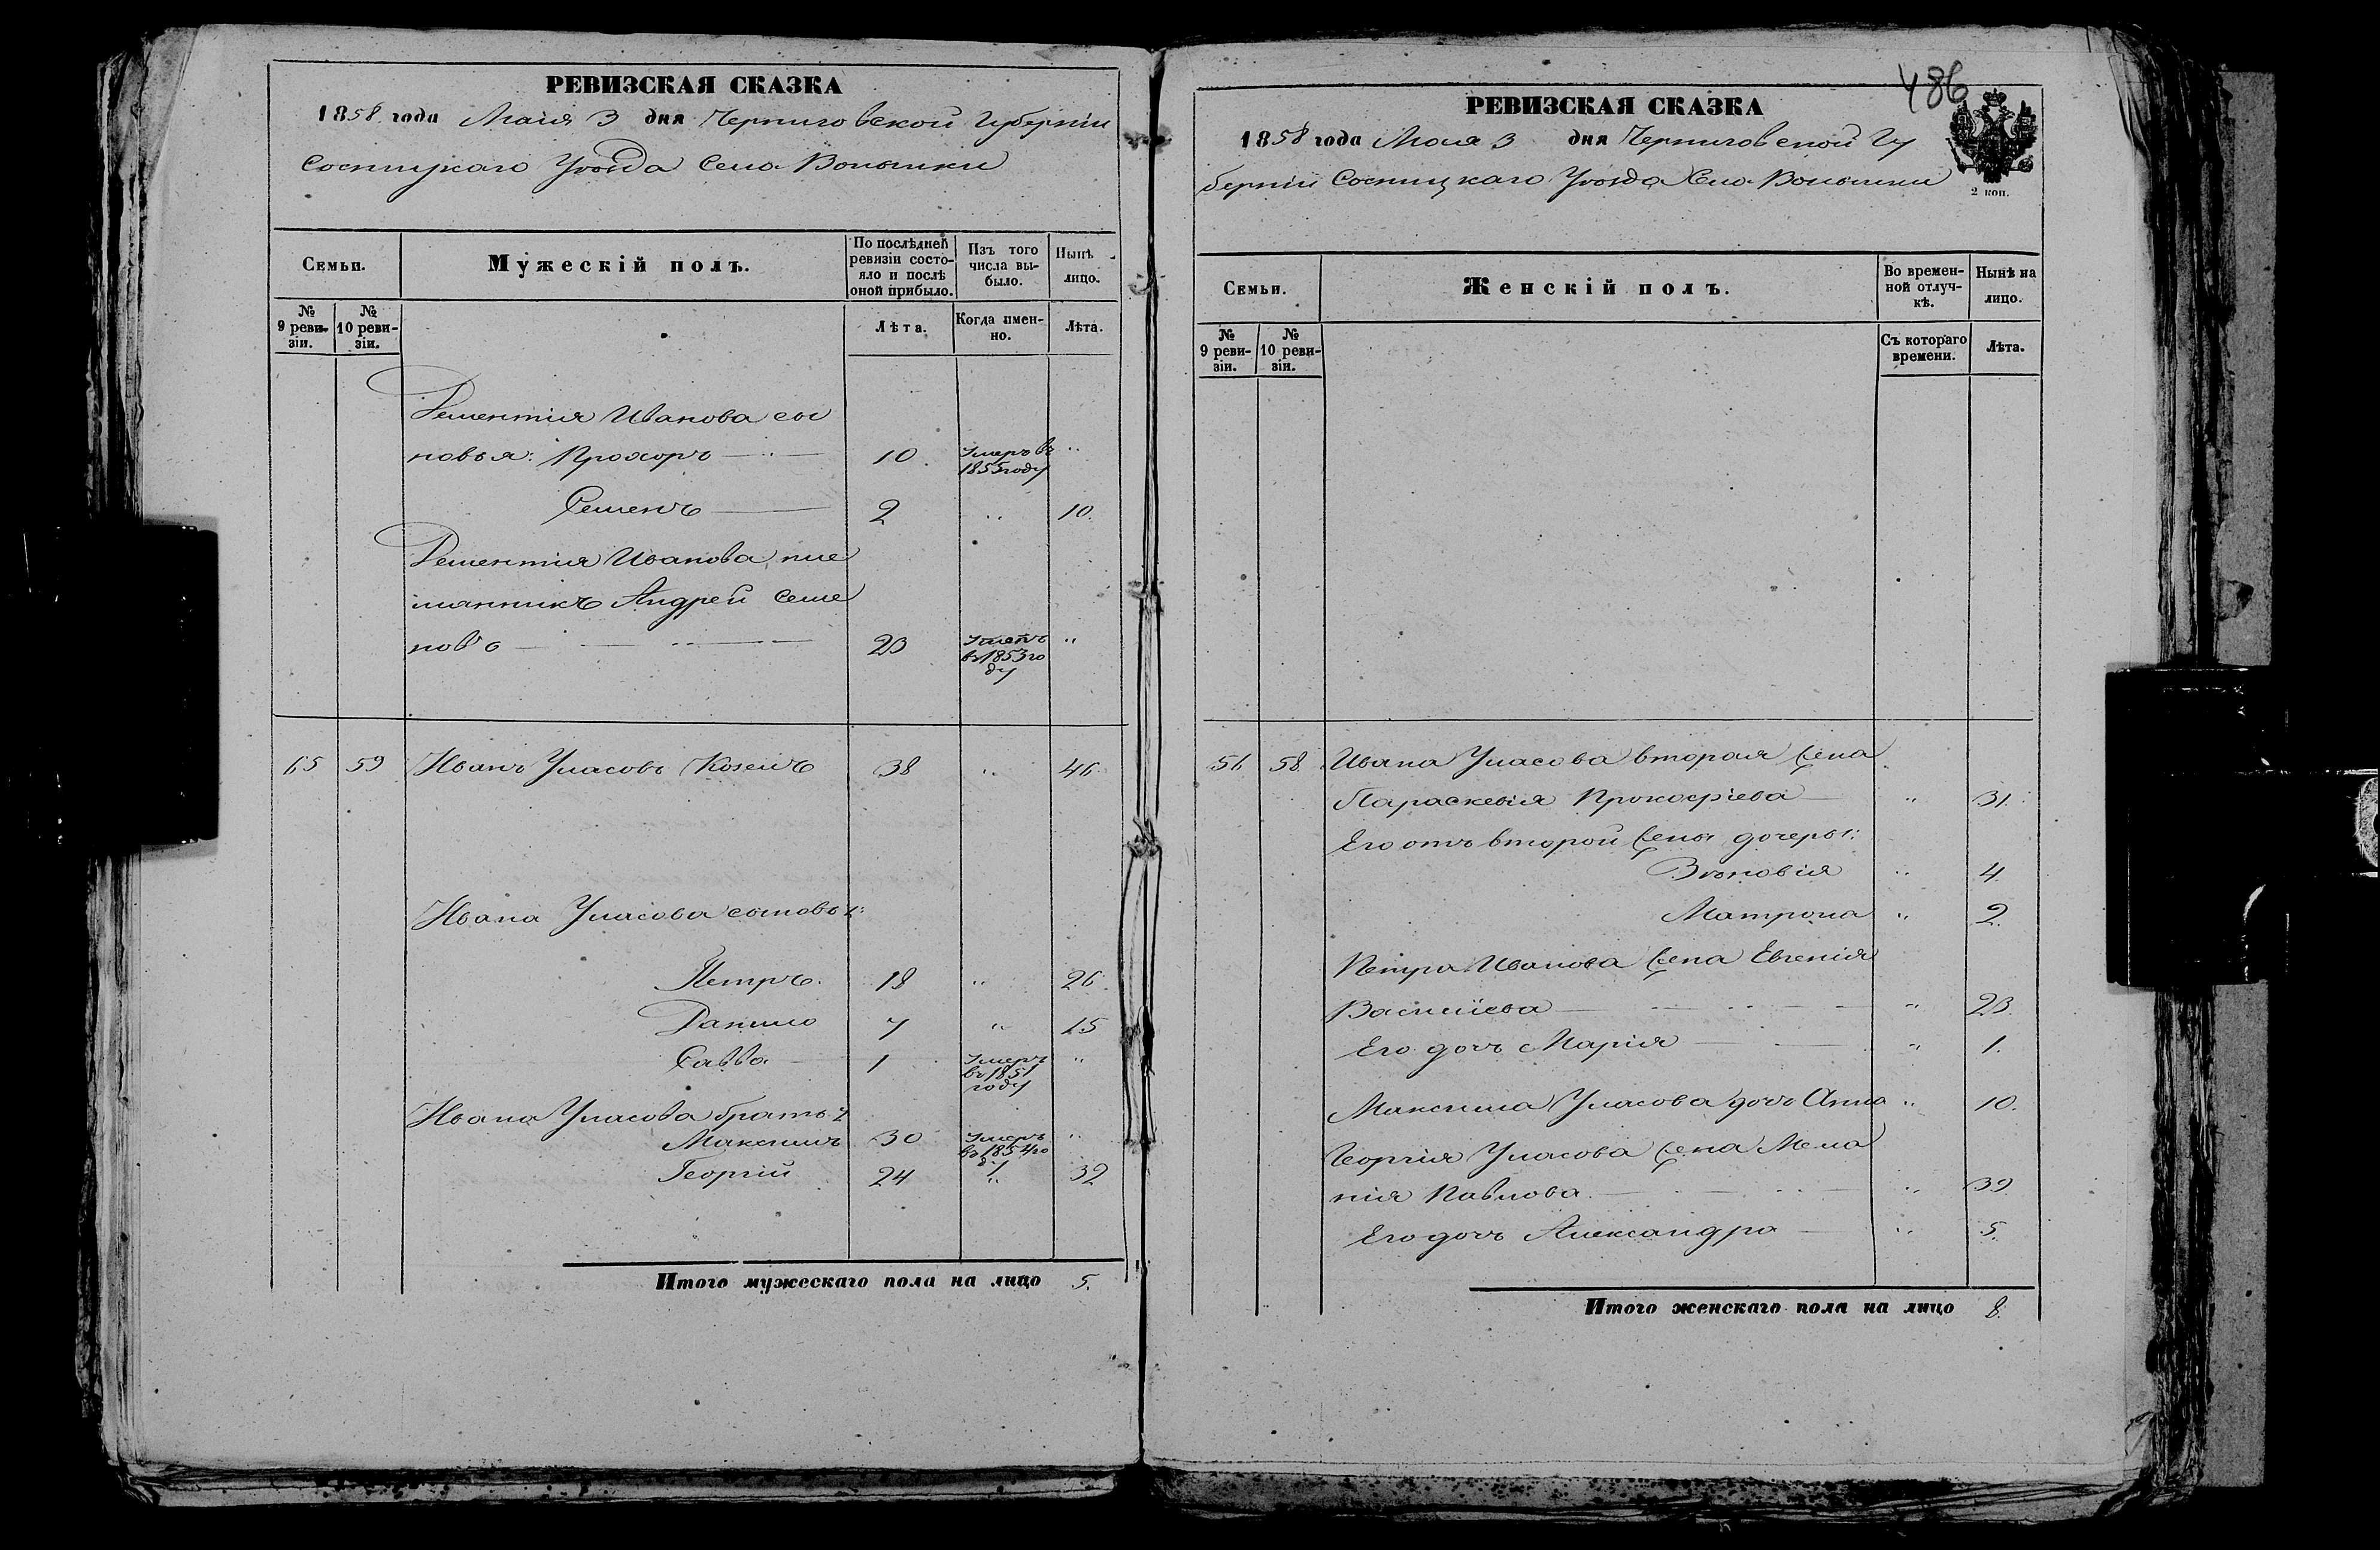 РЕВИЗСКАЯ СКАЗКА
1858 года Маія 3 дня Черниговской Губерніи
Сосницкаго Уѣзда Села Волынки
Семьи.
Мужескій полъ.
По послѣдней ревизіи состояло и послѣ оной прибыло.
Изъ того числа выбыло.
Нынѣ лицо.
№ 9 ревизіи.
№ 10 ревизіи.
Лѣта.
Когда именно.
Лѣта.
Дементія Иванова сы
новья: Прохоръ 10. Умеръ въ 1855 году "
Семенъ 2 " 10.
Дементія Иванова, пле
мянникъ Андрей Семе
новъ 23 въ 1853 го ду "
65 59 Иванъ Уласовъ Козелъ 38 " 46.
Ивана Уласова сыновья:
Петръ. 18 " 26.
Данило 7 " 15
Савва 1 Умеръ въ 1851 году "
Ивана Уласова братья
Максимъ 30 Умеръ въ 1854 го ду "
Георгій 24 " 32
Итого мужескаго пола на лицо 5.
486
РЕВИЗСКАЯ СКАЗКА
1858 года Маія 3 дня Черниговской Гу
берніи Сосницкаго Уѣзда Села Волынки
2 коп.
Семьи.
Женскій полъ.
Во временной отлучкѣ.
Нынѣ на лицо.
№ 9 ревизіи.
№ 10 ревизіи.
Съ котораго времени.
Лѣта.
56 58 Ивана Уласова вторая жена
Параскевія Прокофіева " 31.
Его отъ второй жены дочеры:
Зѣновія " 4.
Матрона " 2.
Петра Иванова жена Евгенія
Василіева " 23.
Его дочь Марія " 1.
Максима Уласова дочь Анна " 10.
Георгія Уласова жена Мела
нія Павлова " 39
Его дочь Александра " 5.
Итого женскаго пола на лицо 8.